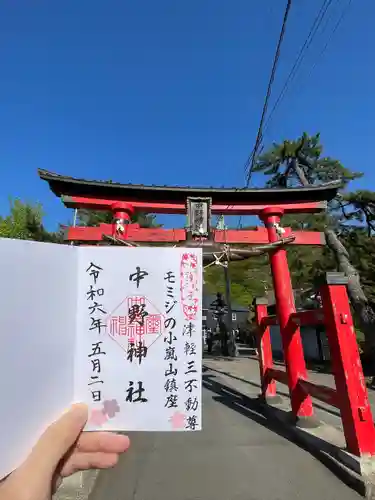 モミジの小嵐山鎮座
津軽三不動尊
中野神社
令和六年五月二日